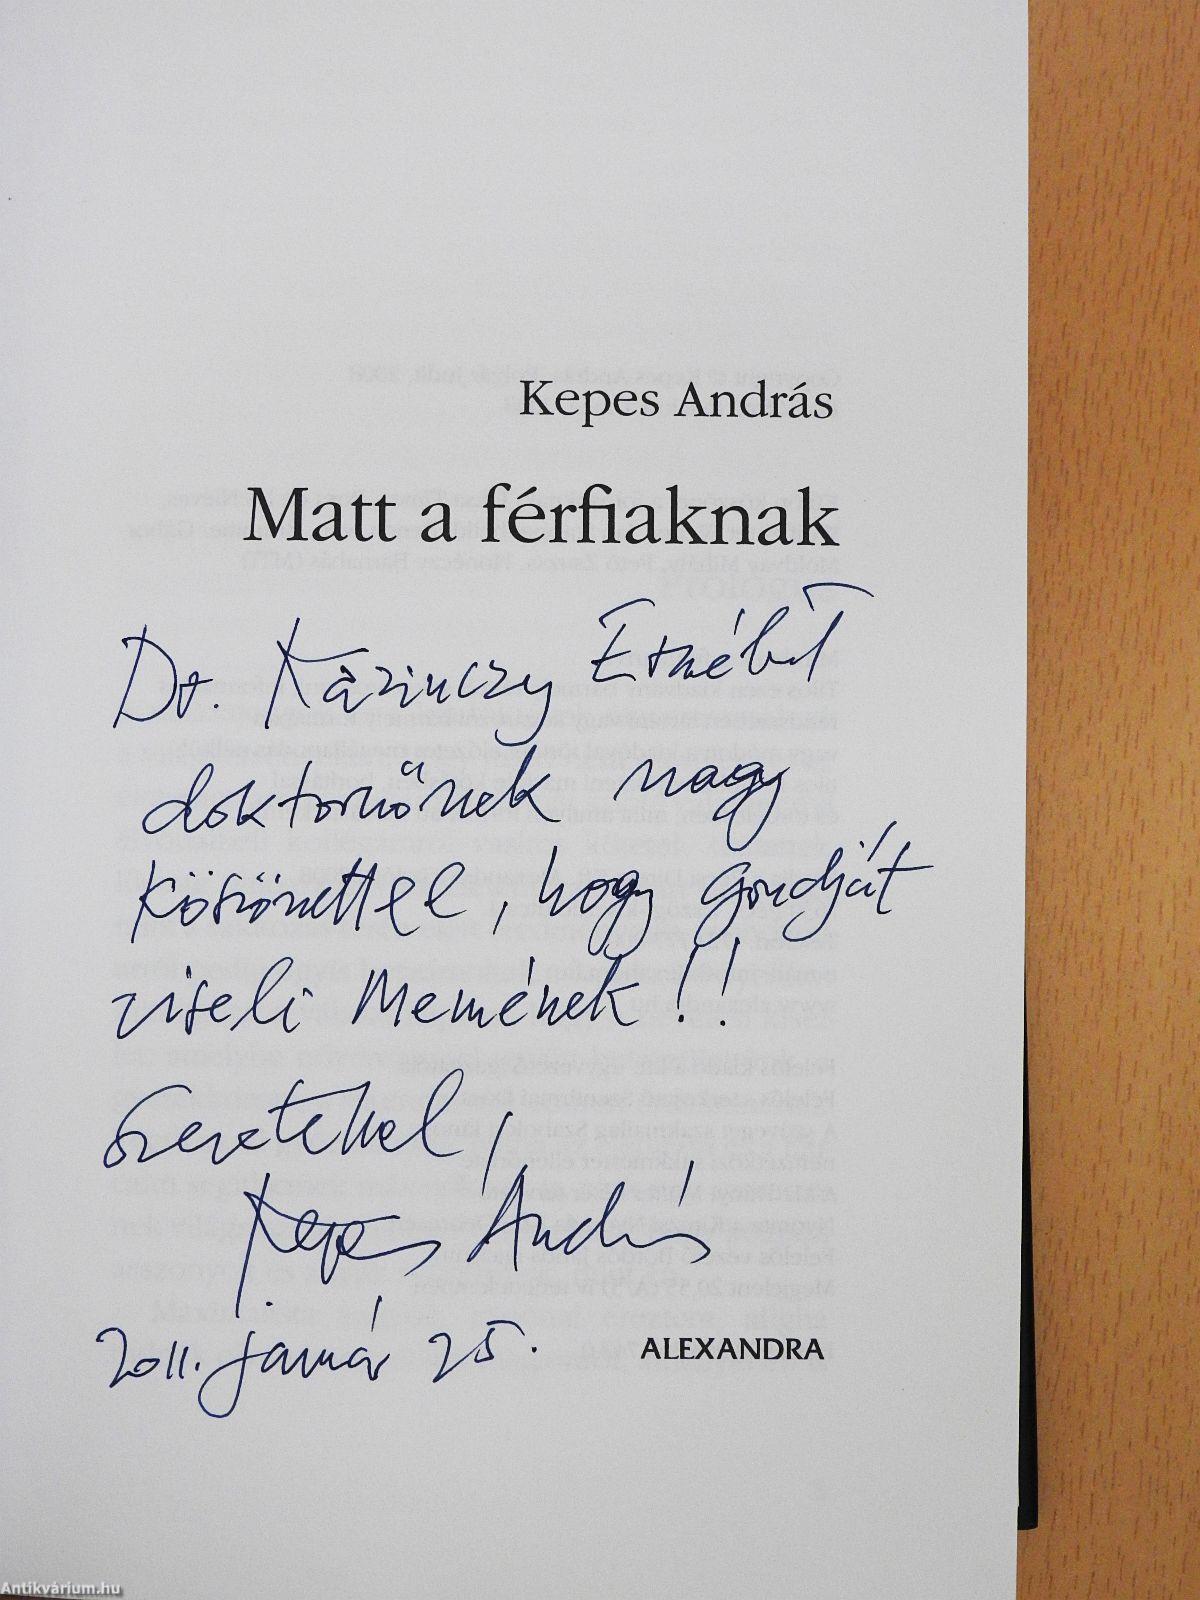 Kepes András
Matt a férfiaknak
Dr. Kazinczy
doktornőnek nagy
köszönettel, hogy gondját
viseli Memének!!
Szeretettel,
Kepes András
2011. január 25.
ALEXANDRA
Antikvárium.hu